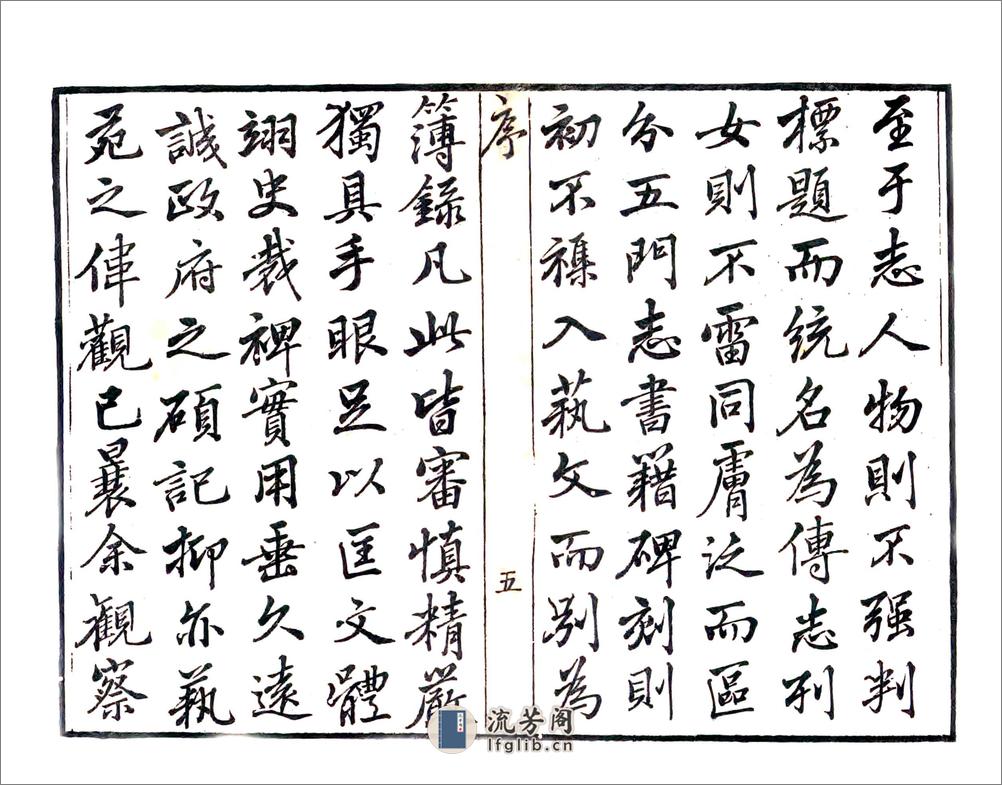 至于志人物則不强判
標題而统名為傳志列
女則不雷同膚泛而區
分五門志書籍碑刻則
初不襍入蓺文而别為
序
五
簿錄凡此皆審慎精嚴
獨具手眼足以匡文體
翊史裁裨實用垂久遠
誠政府之碩記抑亦蓺
苑之偉觀已曩余觀察
流芳阁
lfglib.cn